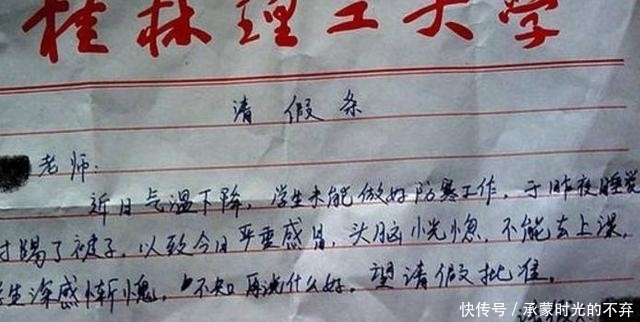 桂林理工大学
请假条
老师:
近日气温下降,学生未能做好防寒工作,于昨夜睡觉
时踢了被子,以致今日严重感冒,头脑恍惚,不能去上课,
学生深感惭愧,不知再说什么好。望请假批准。
快传号/承蒙时光的不弃